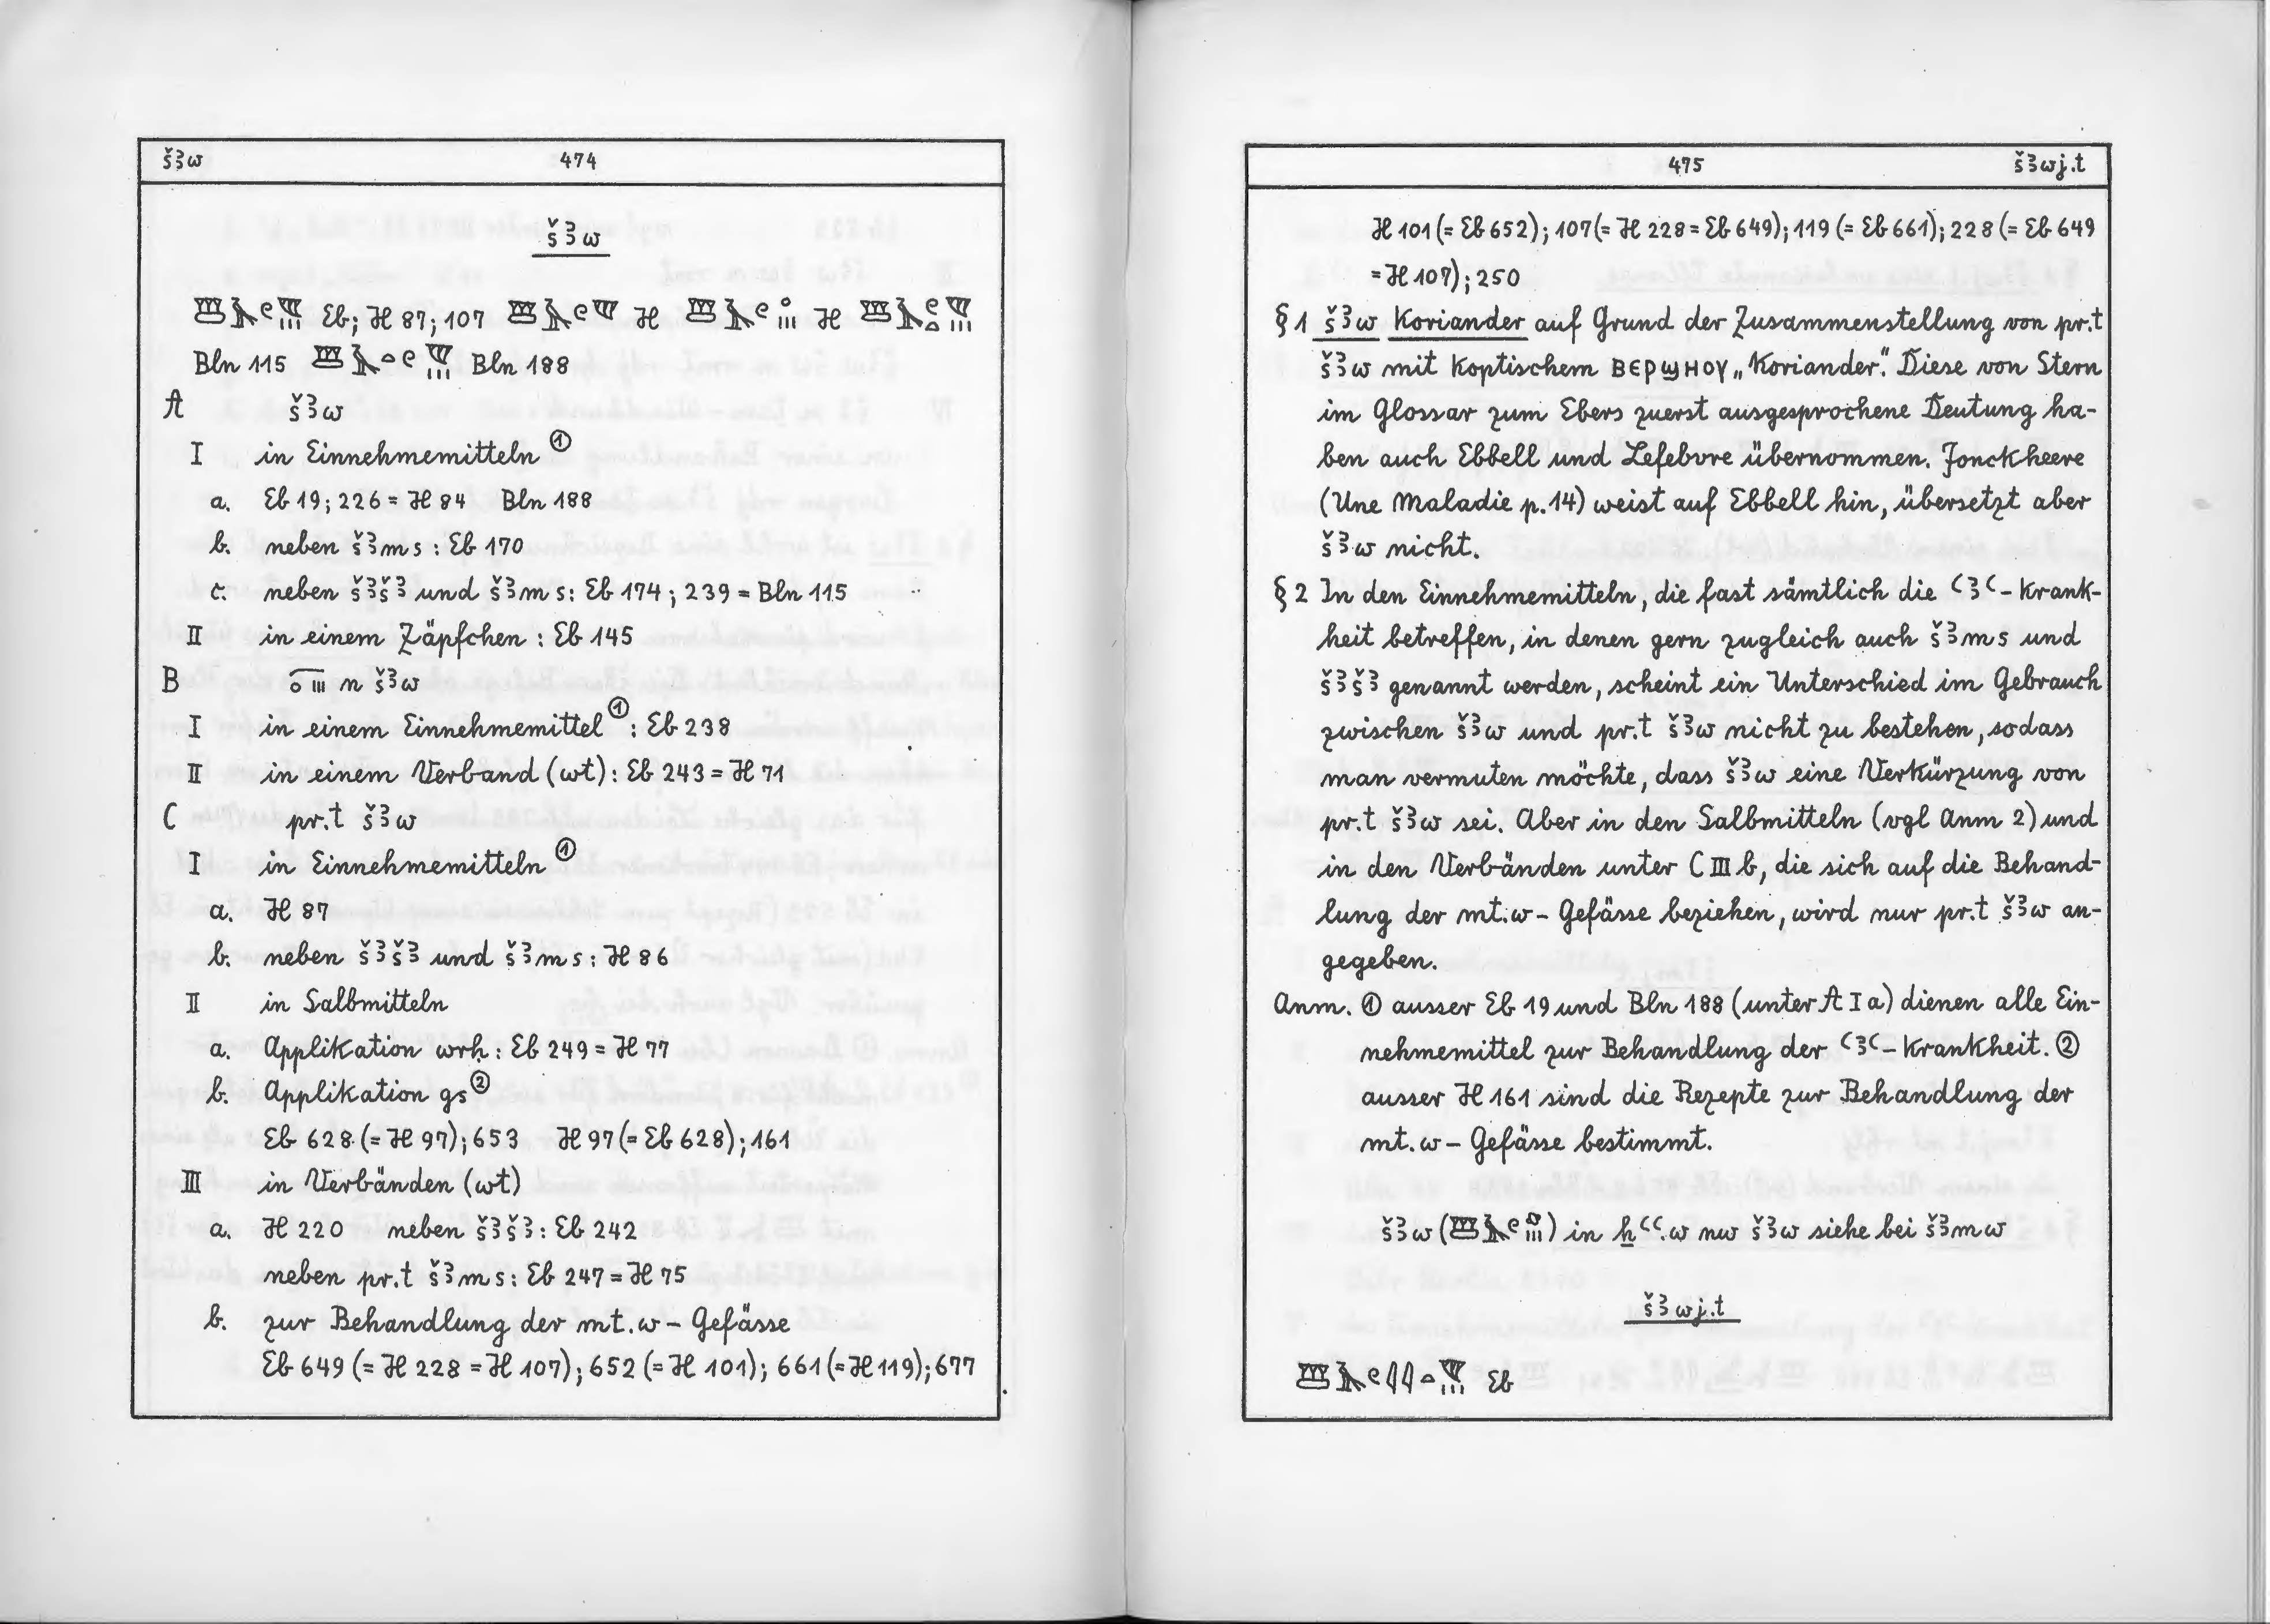 šꜣw 474
šꜣw
𓆷𓄿𓏲𓆰𓏥 Eb; H 87; 107 𓆷𓄿𓏲𓆰 H 𓆷𓄿𓏲𓏥 H 𓆷𓄿𓏲𓏏𓆰𓏥
Bln 115 𓆷𓄿𓏏𓏲𓆰𓏥 Bln 188
A šꜣw
I in Einnehmemitteln ①
a. Eb 19; 226 = H 84 Bln 188
b. neben šꜣms : Eb 170
c. neben šꜣšꜣ und šꜣms: Eb 174; 239 = Bln 115
II in einem Zäpfchen : Eb 145
B n šꜣw
I in einem Einnehmemittel ① : Eb 238
II in einem Verband (wt): Eb 243 = H 71
C pr.t šꜣw
I in Einnehmemitteln ①
a. H 87
b. neben šꜣšꜣ und šꜣms: H 86
II in Salbmitteln
a. Applikation wrḥ: Eb 249 = H 77
b. Applikation gs ②
Eb 628 (= H 97); 653 H 97 (= Eb 628); 161
III in Verbänden (wt)
a. H 220 neben šꜣšꜣ: Eb 242
neben pr.t šꜣms: Eb 247 = H 75
b. zur Behandlung der mt.w - Gefässe
Eb 649 (= H 228 = H 107); 652 (= H 101); 661 (= H 119); 677
475 šꜣwj.t
H 101 (= Eb 652); 107 (= H 228 = Eb 649); 119 (= Eb 661); 228 (= Eb 649
= H 107); 250
§ 1 šꜣw Koriander auf Grund der Zusammenstellung von pr.t
šꜣw mit Koptischem ⲃⲉⲣϣⲏⲟⲩ „Koriander“. Diese von Stern
im Glossar zum Ebers zuerst ausgesprochene Deutung ha-
ben auch Ebbell und Lefebvre übernommen. Jonckheere
(Une Maladie p. 14) weist auf Ebbell hin, übersetzt aber
šꜣw nicht.
§ 2 In den Einnehmemitteln, die fast sämtlich die ꜥꜣꜥ - Krank-
heit betreffen, in denen gern zugleich auch šꜣms und
šꜣšꜣ genannt werden, scheint ein Unterschied im Gebrauch
zwischen šꜣw und pr.t šꜣw nicht zu bestehen, sodass
man vermuten möchte, dass šꜣw eine Verkürzung von
pr.t šꜣw sei. Aber in den Salbmitteln (vgl Anm 2) und
in den Verbänden unter C III b, die sich auf die Behand-
lung der mt.w - Gefässe beziehen, wird nur pr.t šꜣw an-
gegeben.
Anm. ① ausser Eb 19 und Bln 188 (unter A I a) dienen alle Ein-
nehmemittel zur Behandlung der ꜥꜣꜥ - Krankheit. ②
ausser H 161 sind die Rezepte zur Behandlung der
mt.w - Gefässe bestimmt.
šꜣw (𓆷𓄿𓏲𓏥) in ẖꜥꜥ.w nw šꜣw siehe bei šꜣmw
šꜣwj.t
𓆷𓄿𓏲𓇋𓇋𓏏𓆰𓏥 Eb